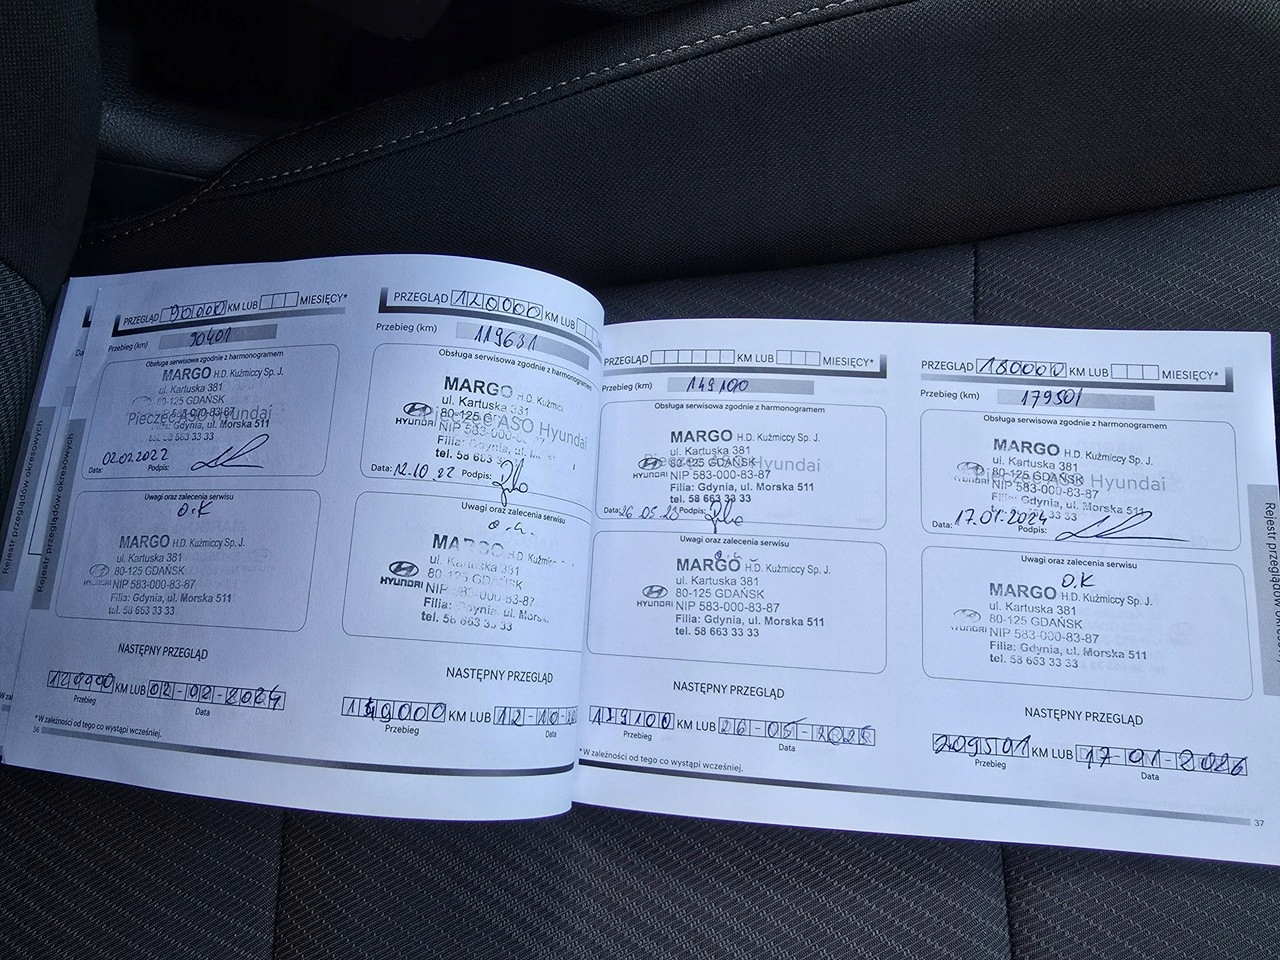 PRZEGLĄD 90000 KM LUB MIESIĘCY*
Przebieg (km) 90401
Obsługa serwisowa zgodnie z harmonogramem
MARGO H.D. Kuźmiccy Sp. J.
ul. Kartuska 381
80-125 GDAŃSK
NIP 583-000-83-87
Pieczęć ASO Hyundai
Filia: Gdynia, ul. Morska 511
tel. 58 663 33 33
Data: 02.02.2022 Podpis:
Uwagi oraz zalecenia serwisu
O.K
MARGO H.D. Kuźmiccy Sp. J.
ul. Kartuska 381
80-125 GDAŃSK
HYUNDAI NIP 583-000-83-87
Filia: Gdynia, ul. Morska 511
tel. 58 663 33 33
NASTĘPNY PRZEGLĄD
KM LUB 02-02-2024
Przebieg Data
*W zależności od tego co wystąpi wcześniej.
36
PRZEGLĄD 120000 KM LUB
Przebieg (km) 119631
Obsługa serwisowa zgodnie z harmonogramem
MARGO H.D. Kuźmicc
ul. Kartuska 381
80-125 G
ASO Hyundai
HYUNDAI NIP 583-000- -87
Filia: Gdynia, ul. Mors
tel. 58 663
Data: 12.10.22 Podpis:
Uwagi oraz zalecenia serwisu
o.k.
MARGO H.D. Kuźmicc
ul. Kartuska 381
80-125 GDAŃSK
HYUNDAI NIP 583-000-83-87
Filia: Gdynia, ul. Mors
tel. 58 663 33 33
NASTĘPNY PRZEGLĄD
KM LUB 12-10-
Przebieg Data
PRZEGLĄD KM LUB MIESIĘCY*
Przebieg (km) 149100
Obsługa serwisowa zgodnie z harmonogramem
MARGO H.D. Kuźmiccy Sp. J.
ul. Kartuska 381
80-125 GDAŃSK
Pieczęć Hyundai
HYUNDAI NIP 583-000-83-87
Filia: Gdynia, ul. Morska 511
tel. 58 663 33 33
Data: 26.05.23 Podpis:
Uwagi oraz zalecenia serwisu
o.k
MARGO H.D. Kuźmiccy Sp. J.
ul. Kartuska 381
80-125 GDAŃSK
HYUNDAI NIP 583-000-83-87
Filia: Gdynia, ul. Morska 511
tel. 58 663 33 33
NASTĘPNY PRZEGLĄD
179100 KM LUB 26-05-2025
Przebieg Data
*W zależności od tego co wystąpi wcześniej.
PRZEGLĄD 180000 KM LUB MIESIĘCY*
Przebieg (km) 179501
Obsługa serwisowa zgodnie z harmonogramem
MARGO H.D. Kuźmiccy Sp. J.
ul. Kartuska 381
80-125 GDAŃSK
Pieczęć ASO Hyundai
NIP 583-000-83-87
Filia: Gdynia, ul. Morska 511
tel. 58 663 33 33
Data: 17.01.2024 Podpis:
Uwagi oraz zalecenia serwisu
O.K
MARGO H.D. Kuźmiccy Sp. J.
ul. Kartuska 381
80-125 GDAŃSK
HYUNDAI NIP 583-000-83-87
Filia: Gdynia, ul. Morska 511
tel. 58 663 33 33
NASTĘPNY PRZEGLĄD
209501 KM LUB 17-01-2026
Przebieg Data
37
Rejestr przeglądów okresowych
Rejestr przeglądów okresowych
Rejestr przeglądów